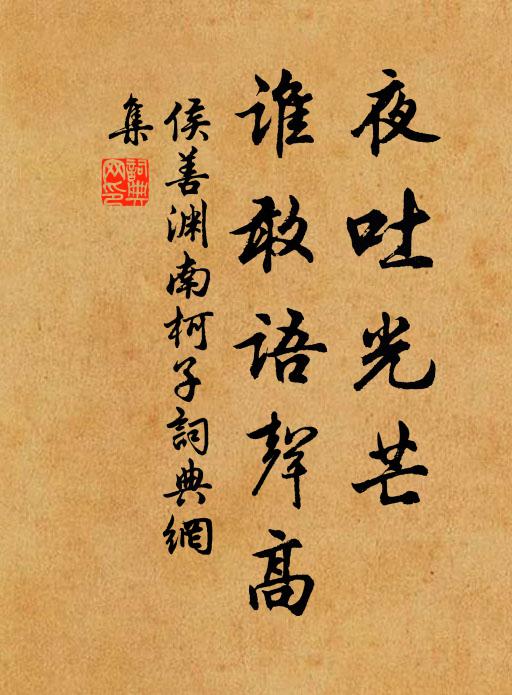 夜吐光芒
誰敢語聲高
侯善渊南柯子詞典網
集
詞典网印